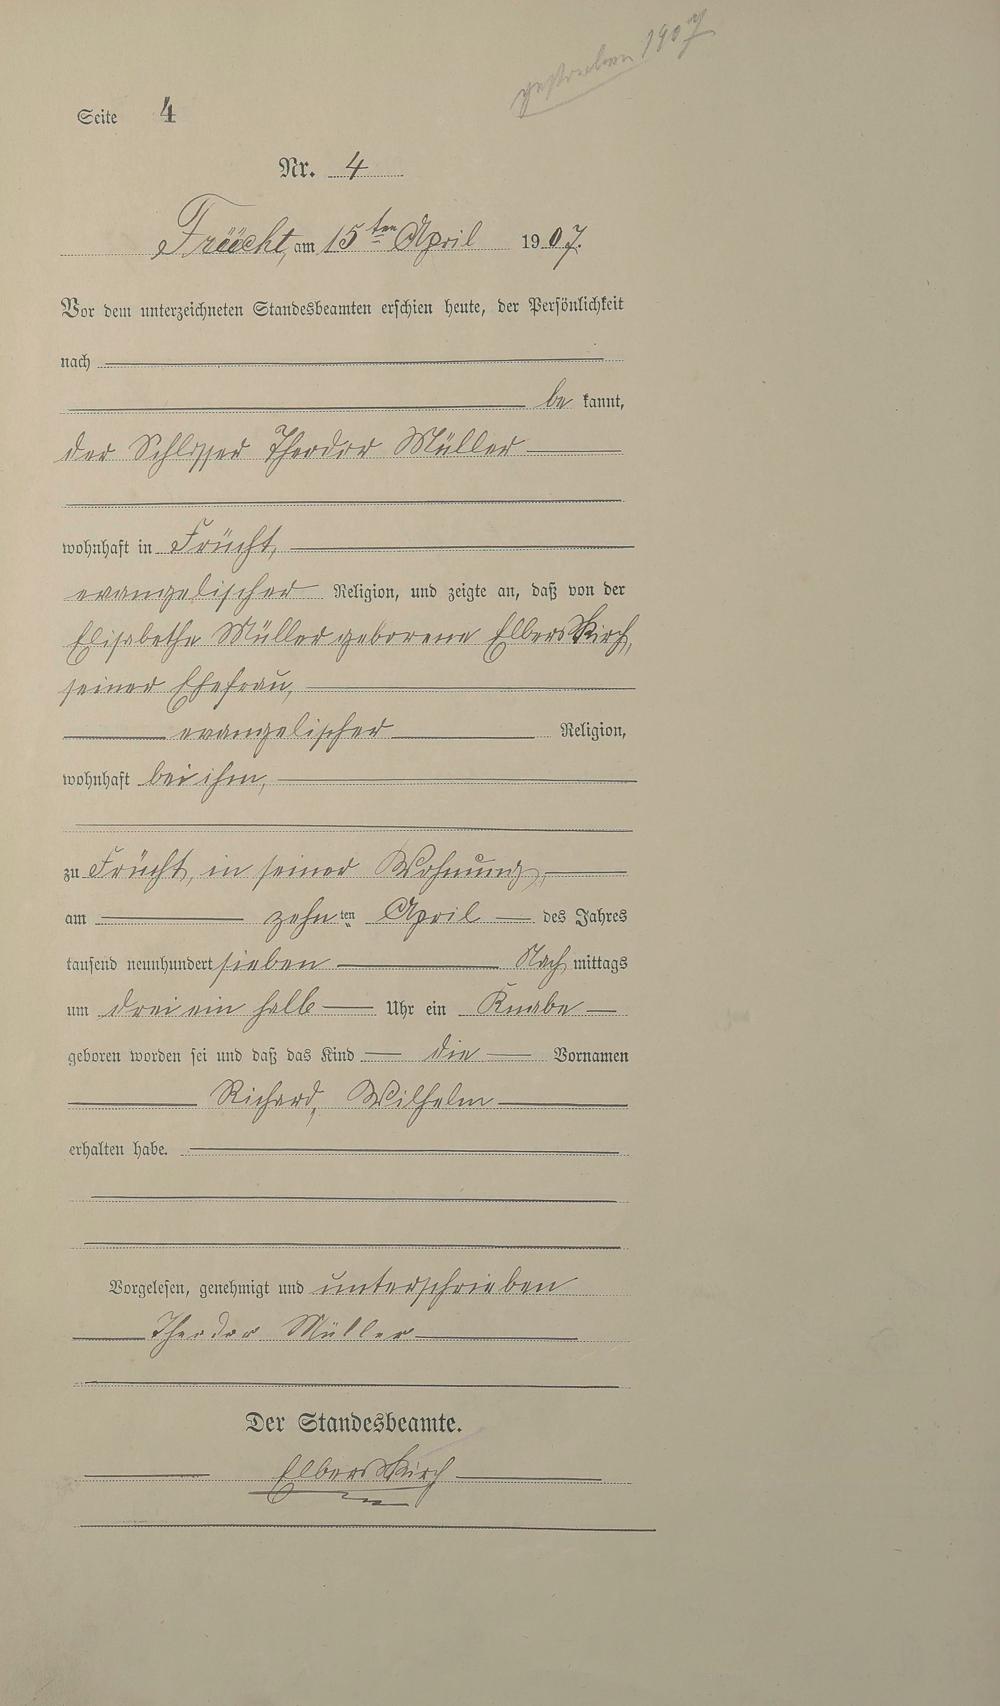 gestorben 1907
Seite 4
Nr. 4
Frücht, am 15ten April 1907.
Vor dem unterzeichneten Standesbeamten erschien heute, der Persönlichkeit
nach
be kannt,
der Schlosser Theodor Müller
wohnhaft in Frücht,
evangelischer Religion, und zeigte an, daß von der
Elisabetha Müller geborene Elberskirch,
seiner Ehefrau,
evangelischer Religion,
wohnhaft bei ihm,
zu Frücht, in seiner Wohnung,
am zehnten April des Jahres
tausend neunhundert sieben Nach mittags
um drei ein halb Uhr ein Knabe
geboren worden sei und daß das Kind die Vornamen
Richard, Wilhelm
erhalten habe.
Vorgelesen, genehmigt und unterschrieben
Theodor Müller
Der Standesbeamte.
Elberskirch